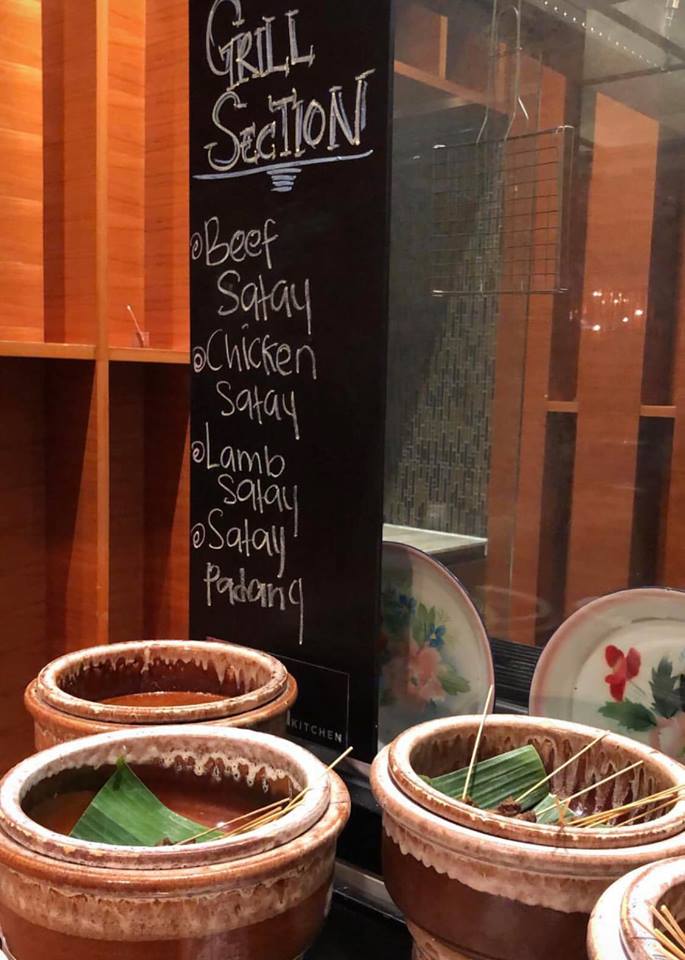 GRILL
SECTION
Beef
Satay
Chicken
Satay
Lamb
Satay
Satay
Padang
KITCHEN